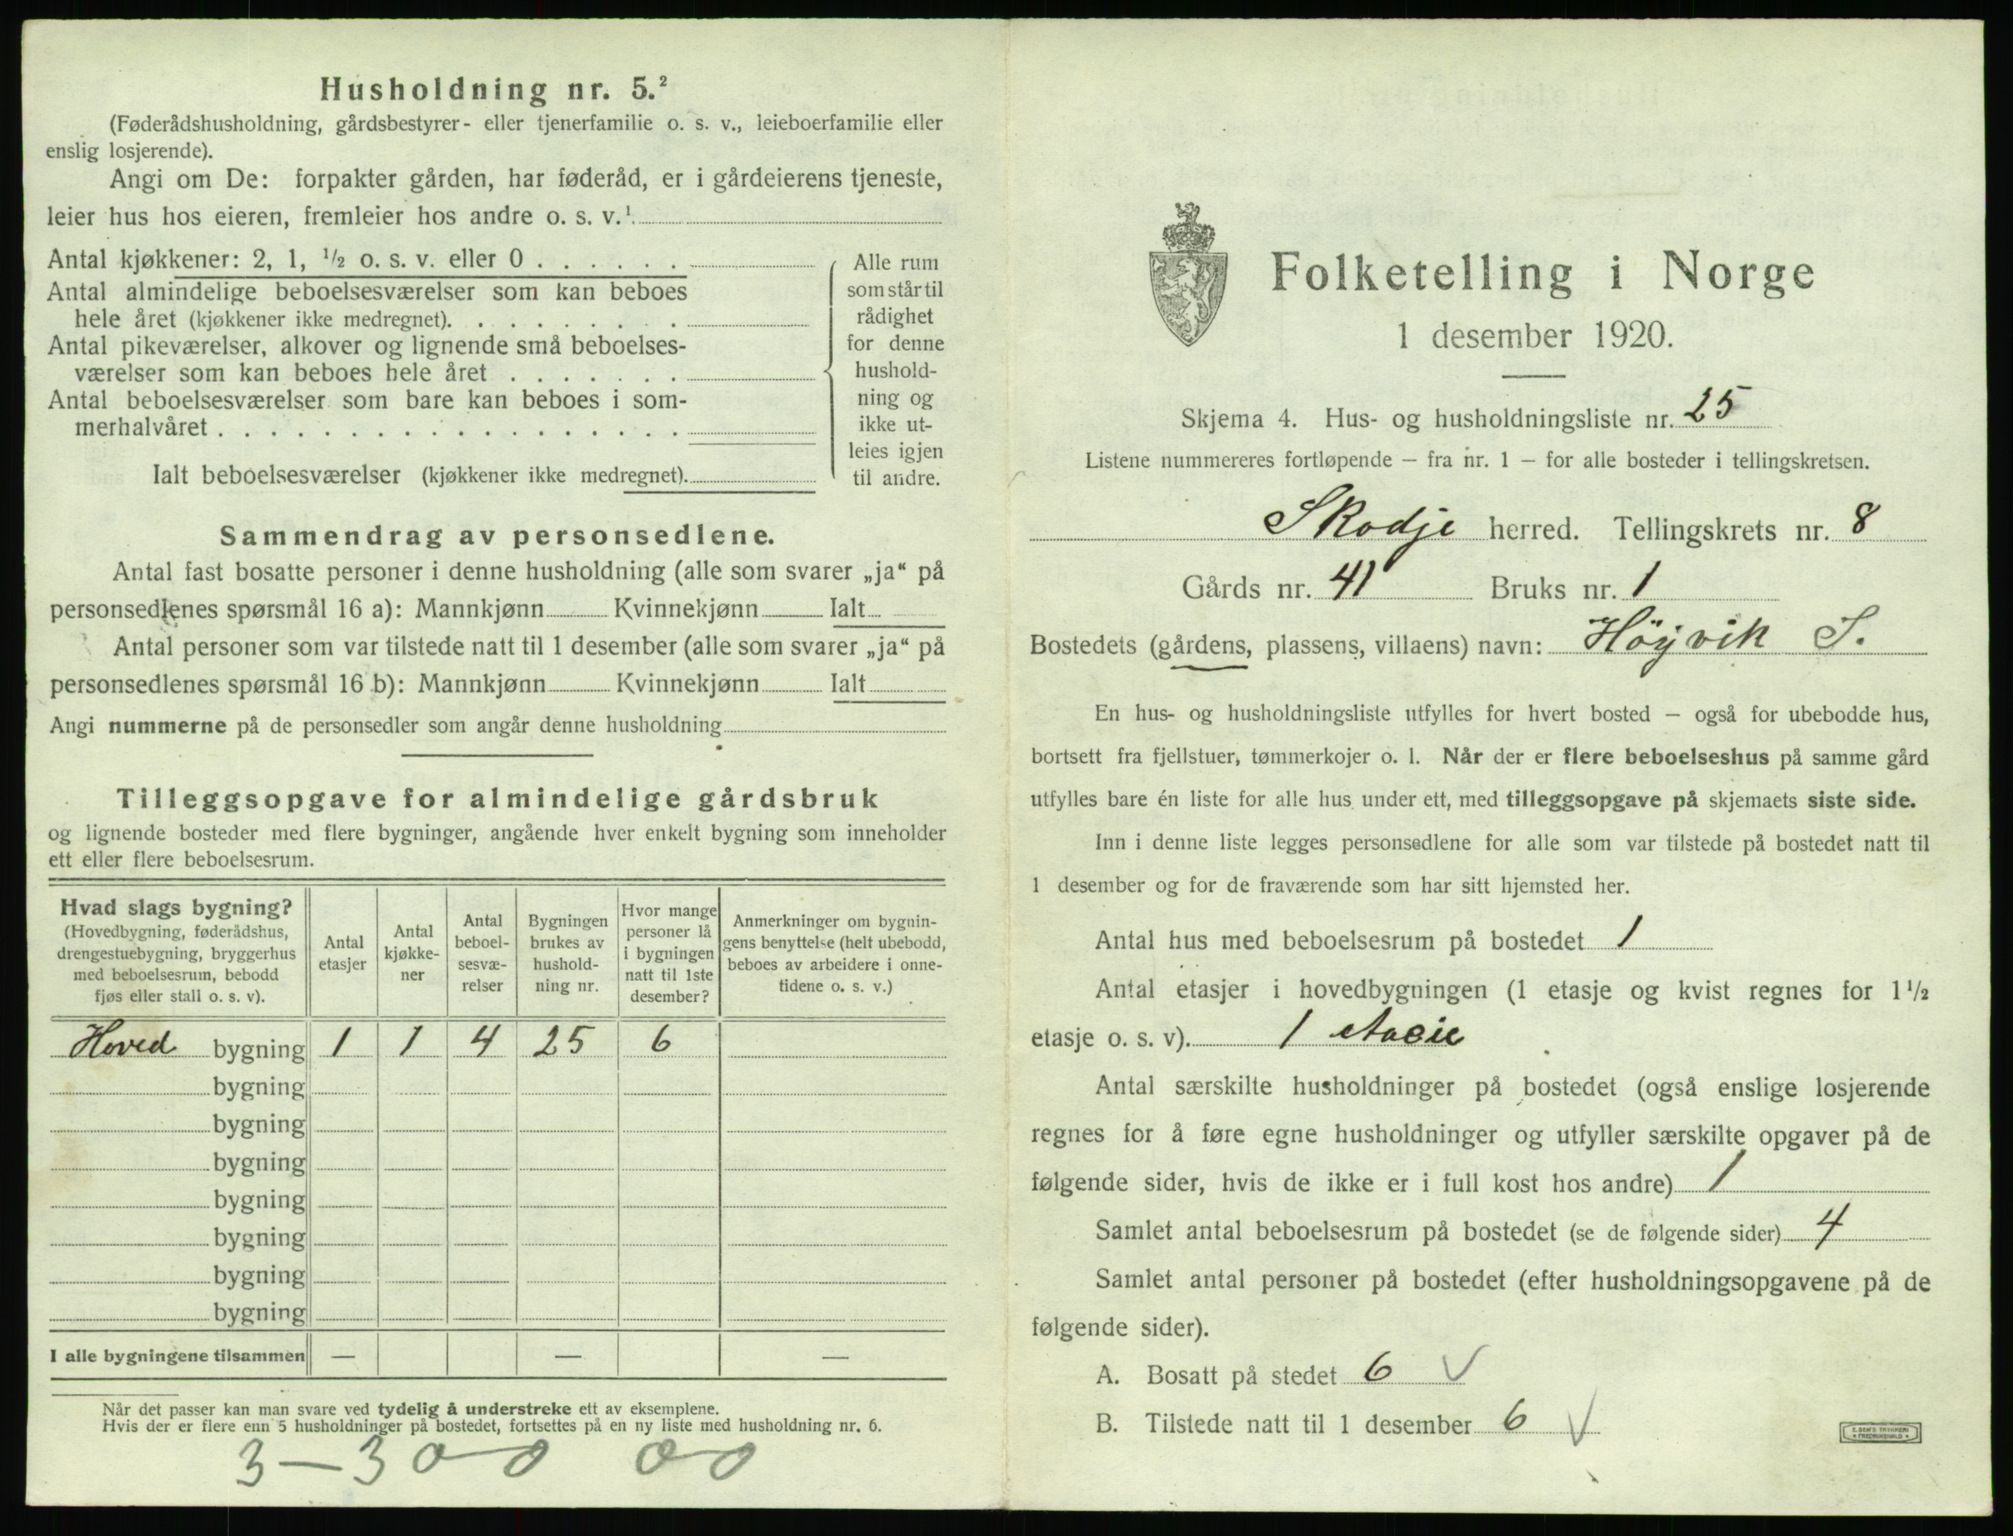 Husholdning nr. 5.²
(Føderådshusholdning, gårdsbestyrer- eller tjenerfamilie o. s. v., leieboerfamilie eller
enslig losjerende).
Angi om De: forpakter gården, har føderåd, er i gårdeierens tjeneste,
leier hus hos eieren, fremleier hos andre o. s. v.¹
Antal kjøkkener: 2, 1, ½ o. s. v. eller 0
Antal almindelige beboelsesværelser som kan beboes
hele året (kjøkkener ikke medregnet).
Antal pikeværelser, alkover og lignende små beboelses-
værelser som kan beboes hele året
Antal beboelsesværelser som bare kan beboes i som-
merhalvåret
Ialt beboelsesværelser (kjøkkener ikke medregnet).
Alle rum
som står til
rådighet
for denne
hushold-
ning og
ikke ut-
leies igjen
til andre.
Sammendrag av personsedlene.
Antal fast bosatte personer i denne husholdning (alle som svarer „ja“ på
personsedlenes spørsmål 16 a): Mannkjønn Kvinnekjønn Ialt
Antal personer som var tilstede natt til 1 desember (alle som svarer „ja“ på
personsedlenes spørsmål 16 b): Mannkjønn Kvinnekjønn Ialt
Angi nummerne på de personsedler som angår denne husholdning
Tilleggsopgave for almindelige gårdsbruk
og lignende bosteder med flere bygninger, angående hver enkelt bygning som inneholder
ett eller flere beboelsesrum.
Hvad slags bygning?
(Hovedbygning, føderådshus,
drengestuebygning, bryggerhus
med beboelsesrum, bebodd
fjøs eller stall o. s. v).
Antal
etasjer
Antal
kjøkke-
ner
Antal
beboel-
sesvæ-
relser
Bygningen
brukes av
hushold-
ning nr.
Hvor mange
personer lå
i bygningen
natt til 1ste
desember?
Anmerkninger om bygnin-
gens benyttelse (helt ubebodd,
beboes av arbeidere i onne-
tidene o. s. v.)
Hoved bygning 1 1 4 25 6
bygning
bygning
bygning
bygning
bygning
bygning
bygning
I alle bygningene tilsammen — — —
Når det passer kan man svare ved tydelig å understreke ett av eksemplene.
Hvis der er flere enn 5 husholdninger på bostedet, fortsettes på en ny liste med husholdning nr. 6.
3-300 00
Folketelling i Norge
1 desember 1920.
Skjema 4. Hus- og husholdningsliste nr. 25
Listene nummereres fortløpende — fra nr. 1 — for alle bosteder i tellingskretsen.
Skodje herred. Tellingskrets nr. 8
Gårds nr. 41 Bruks nr. 1
Bostedets (gårdens, plassens, villaens) navn: Höyvik S.
En hus- og husholdningsliste utfylles for hvert bosted — også for ubebodde hus,
bortsett fra fjellstuer, tømmerkojer o. l. Når der er flere beboelseshus på samme gård
utfylles bare én liste for alle hus under ett, med tilleggsopgave på skjemaets siste side.
Inn i denne liste legges personsedlene for alle som var tilstede på bostedet natt til
1 desember og for de fraværende som har sitt hjemsted her.
Antal hus med beboelsesrum på bostedet 1
Antal etasjer i hovedbygningen (1 etasje og kvist regnes for 1½
etasje o. s. v). 1 etasie
Antal særskilte husholdninger på bostedet (også enslige losjerende
regnes for å føre egne husholdninger og utfyller særskilte opgaver på de
følgende sider, hvis de ikke er i full kost hos andre) 1
Samlet antal beboelsesrum på bostedet (se de følgende sider) 4
Samlet antal personer på bostedet (efter husholdningsopgavene på de
følgende sider).
A. Bosatt på stedet 6
B. Tilstede natt til 1 desember 6